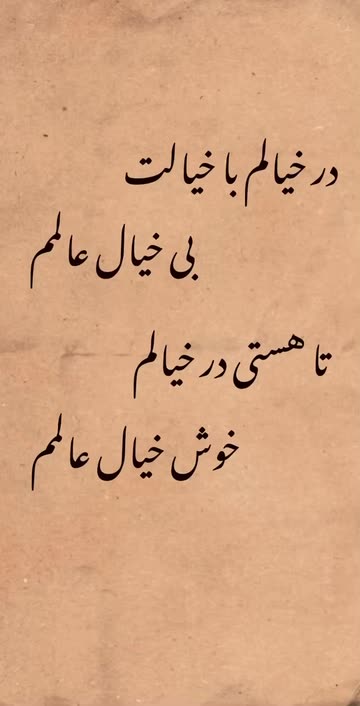 در خیالم با خیالت
بی خیال عالمم
تا هستی در خیالم
خوش خیال عالمم